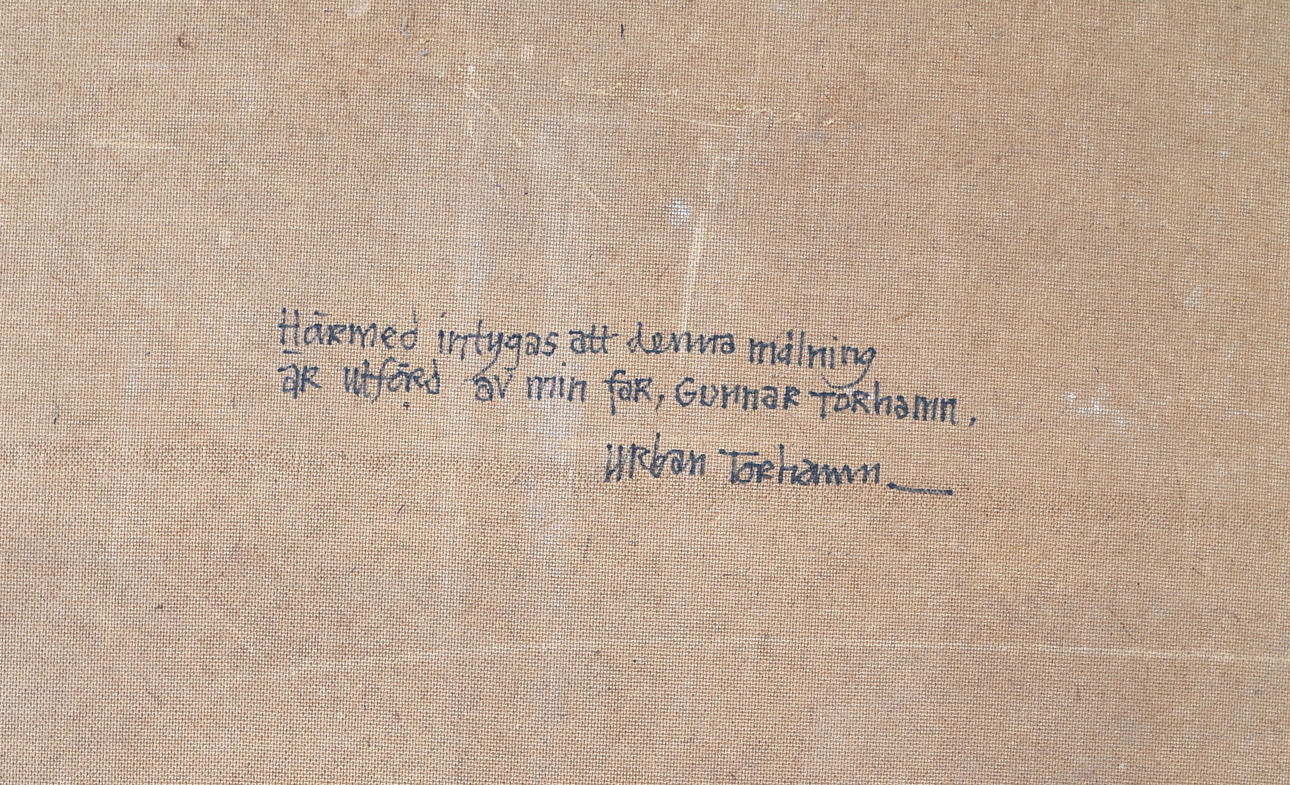 Härmed intygas att denna målning
är utförd av min far, Gunnar Torhamn,
Urban Torhamn.